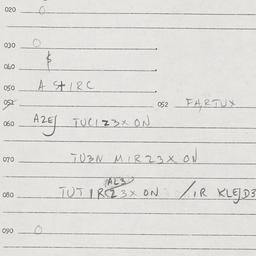 020 0
030 0
040
050 A St IRC
051 052 FARTUX
060 AZEJ TUCIZ3X ON
070 TUBN MIRZ3X ON
AL3
080 TUT IRCZ3X ON /IR KLEJD3
090 0